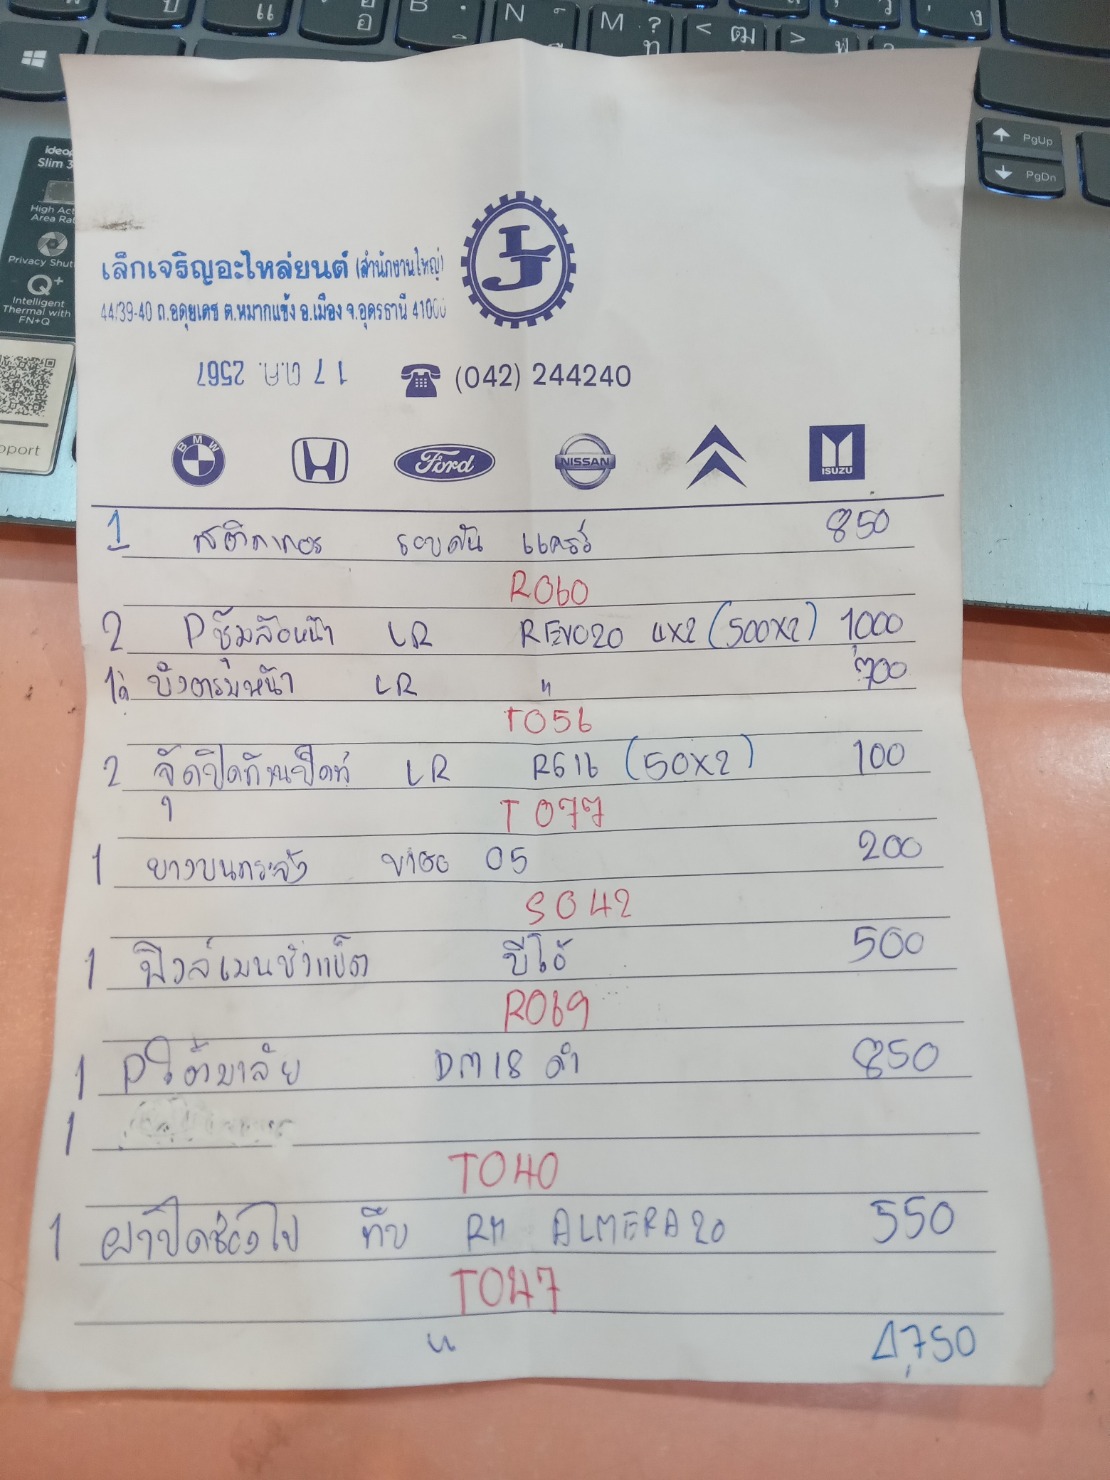 B N M ?
ท < ฒ > ฬ
PgUp
PgDn
Slim 3
High Act
Area Rat
Privacy Shut
Q+
Intelligent
Thermal with
FN+Q
pport
LJ
เล็กเจริญอะไหล่ยนต์ (สำนักงานใหญ่)
44/39-40 ถ.อดุยเดช ต.หมากแข้ง อ.เมือง จ.อุดรธานี 41000
17 ต.ค. 2567
(042) 244240
BMW Ford NISSAN ISUZU
1 สติกเกอร์ รอบคัน แคร์รี่ 850
R060
2 Pซุ้มล้อหน้า LR REVO20 4X2 (500X2) 1,000
บังตรมหน้า LR " 700
T056
2 LR R616 (50X2) 100
T077
1 ยางบนกระจัง 05 200
S042
1 วีโก้ 500
R069
1 Pใต้มาลัย DM18 ดำ 850
1
T040
1 ฝาปิดช่องไฟ ทึบ RH ALMERA20 550
T047
4,750